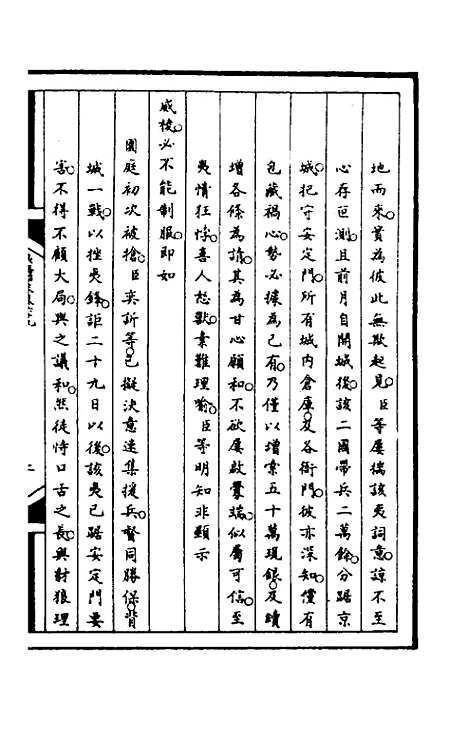 地而來實為彼此無欺起見臣等屢揣該夷詞意諒不至
心存叵測且前月自開城後該二國帶兵二萬餘分踞京
城把守安定門所有城內倉庫及各衙門彼亦深知儻有
包藏禍心勢必據為己有乃僅以增索五十萬現銀及續
增各條為請其為甘心願和不欲屢啟釁端似屬可信至
夷情狂悖喜人怒獸素難理喻臣等明知非顯示
威稜必不能制服即如
園庭初次被搶臣奕訢等已擬決意速集援兵督同勝保背
城一戰以挫夷鋒詎二十九日以後該夷已踞安定門要
害不得不顧大局與之議和然徒恃口舌之長與豺狼理